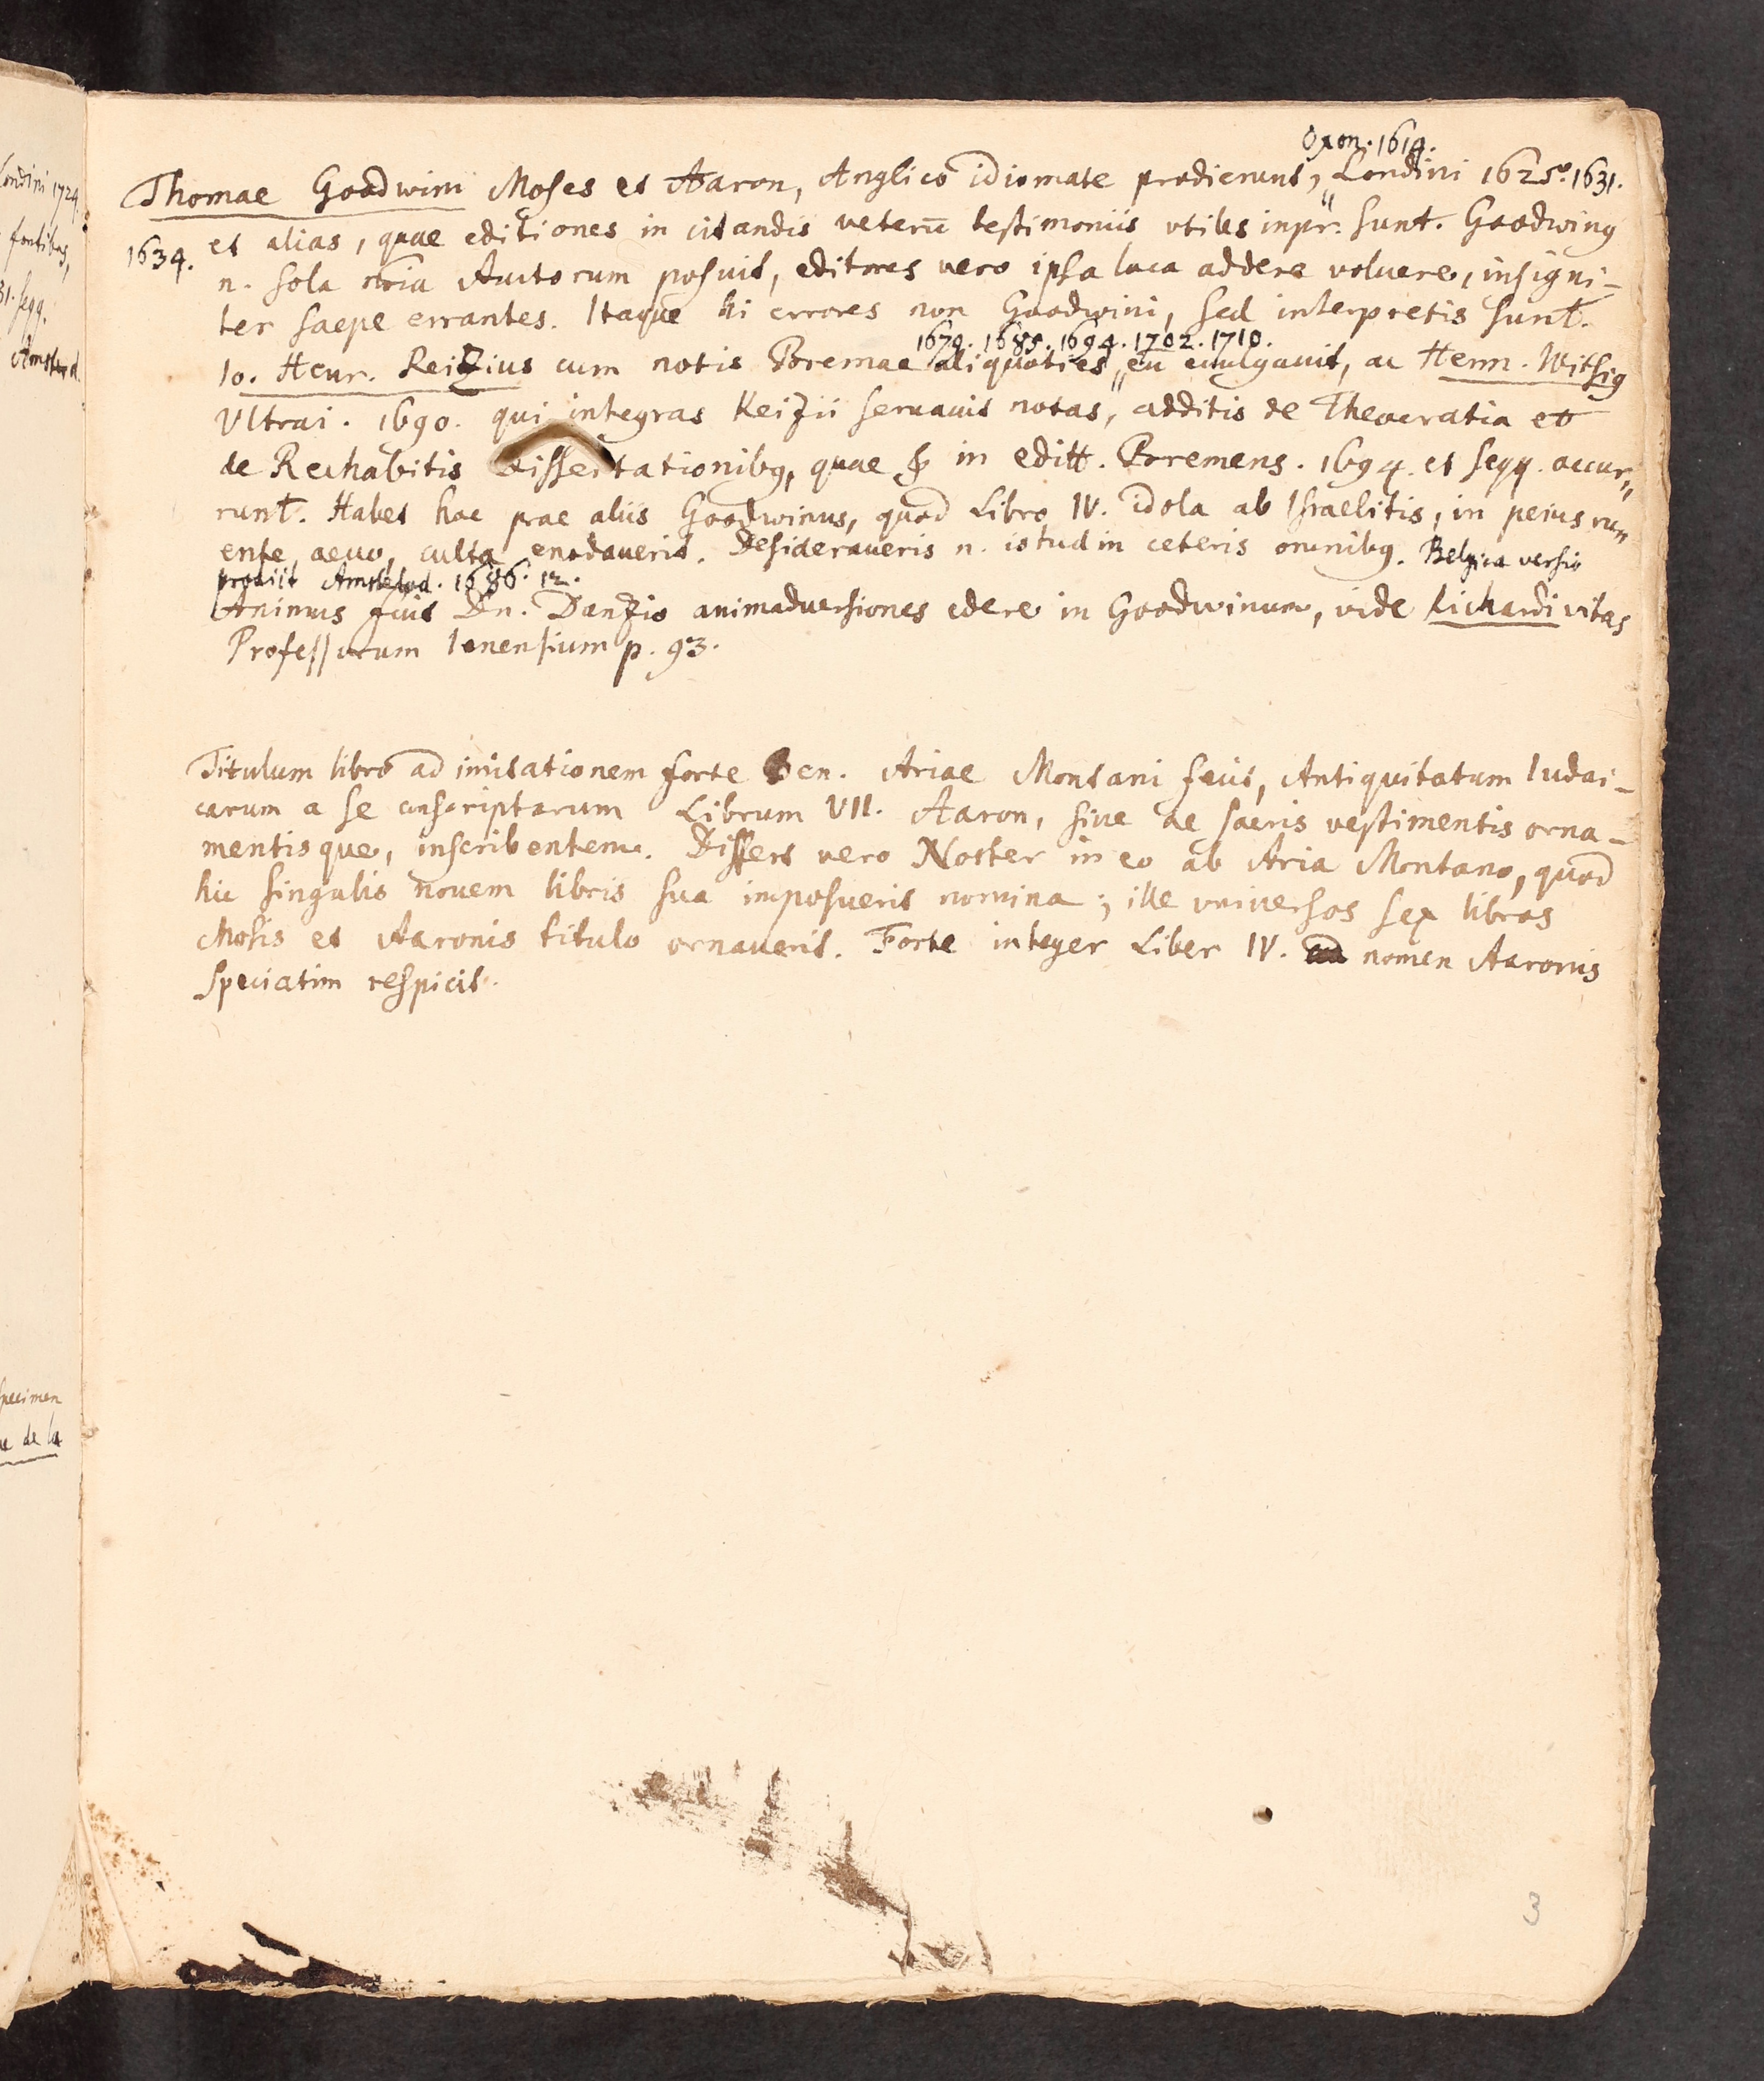 Londini 1724.
fontibus,
31. seqq.
Amsterd.
Specimen
de la
Oxon. 1614.
Thomae Goodwini Moses et Aaron, Anglico idiomate prodierunt, Londini 1625. 1631.
1634. et alias, quae editiones in citandis veterū testimoniis vtiles inpr. sunt. Goodwinꝰ
n. sola nōia Auctorum posuit, editores vero ipsa loca addere voluere, insigni-
ter saepe errantes. Itaque hi errores non Goodwini, sed interpretis sunt.
1679. 1685. 1694. 1702. 1710.
Io. Henr. Reizius cum notis Bremae aliquoties eū euulgauit, ac Herm. Witsiꝰ
Vltrai. 1690. qui integras Reizii seruauit notas, additis de Theocratia et
de Rechabitis dissertationibꝰ, quae & in editt. Bremens. 1694. et seqq. occur„
runt. Habet hoc prae aliis Goodwinus, quod Libro IV. idola ab Israelitis, in peius ru„
ente, aeuo, culta enodauerit. Desideraueris n. istud in ceteris omnibꝰ. Belgica versio
prodiit Amstelod. 1686. 12.
Animus fuit Dn. Danzio animaduersiones edere in Goodwinum, vide Richardi vitas
Professorum Ienensium p. 93.
Titulum libro ad imitationem forte Ben. Ariae Montani fecit, Antiquitatum Iudai-
carum a se conscriptarum Librum VII. Aaron, siue de sacris vestimentis orna-
mentisque, inscribentem. Differt vero Noster in eo ab Aria Montano, quod
hic singulis nouem libris sua imposuerit nomina; ille vniuersos sex libros
Mosis et Aaronis titulo ornauerit. Forte integer Liber IV. nomen Aaronis
speciatim respicit.
3